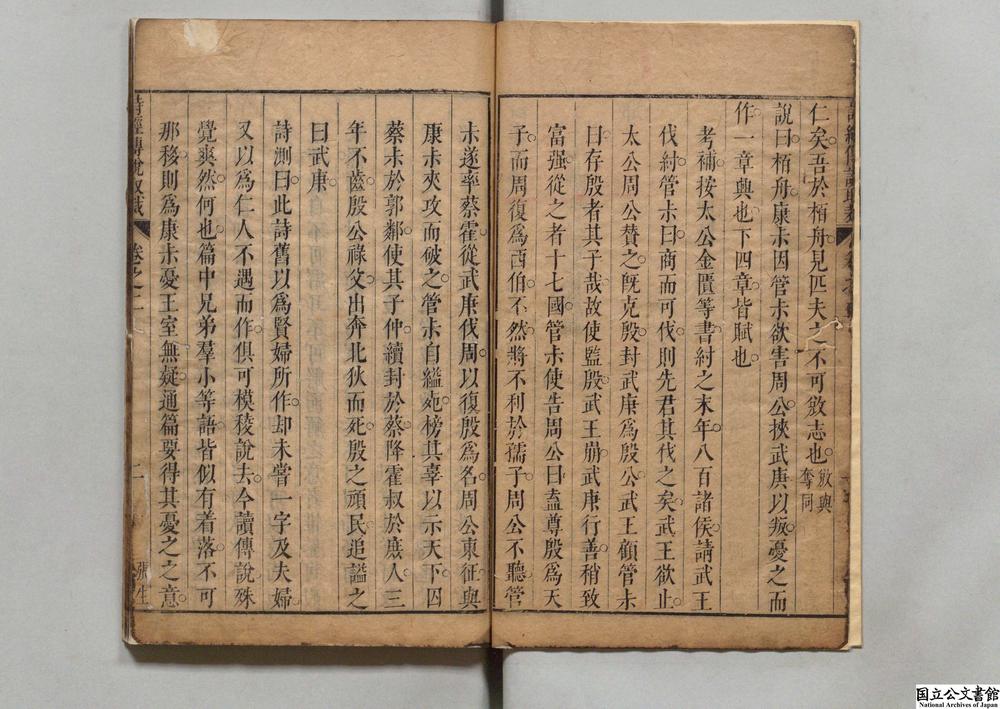 仁矣吾於栢舟見匹夫之不可敓志也敓與奪同
說曰栢舟康未因管未欲害周公挾武庚以叛憂之而
作一章興也下四章皆賦也
考補按太公金匱等書紂之末年八百諸侯請武王
伐紂管未曰商而可伐則先君其伐之矣武王欲止
太公周公贊之旣克殷封武庚爲殷公武王顧管未
曰存殷者其子哉故使監殷武王崩武庚行善稍致
富强從之者十七國管未使告周公曰盍尊殷爲天
子而周復爲西伯不然將不利於孺子周公不聽管
未遂率蔡霍從武庚伐周以復殷爲名周公東征與
康未夾攻而破之管未自縊死榜其辜以示天下囚
蔡未於郭鄰使其子仲續封於蔡降霍叔於庶人三
年不齒殷公祿父出奔北狄而死殷之頑民追謚之
曰武庚
詩測曰此詩舊以爲賢婦所作却未嘗一字及夫婦
又以爲仁人不遇而作俱可模稜說去今讀傳說殊
覺爽然何也篇中兄弟羣小等語皆似有着落不可
那移則爲康未憂王室無疑通篇要得其憂之之意
詩經傳說取裁
卷之二
二
張生
国立公文書館
National Archives of Japan